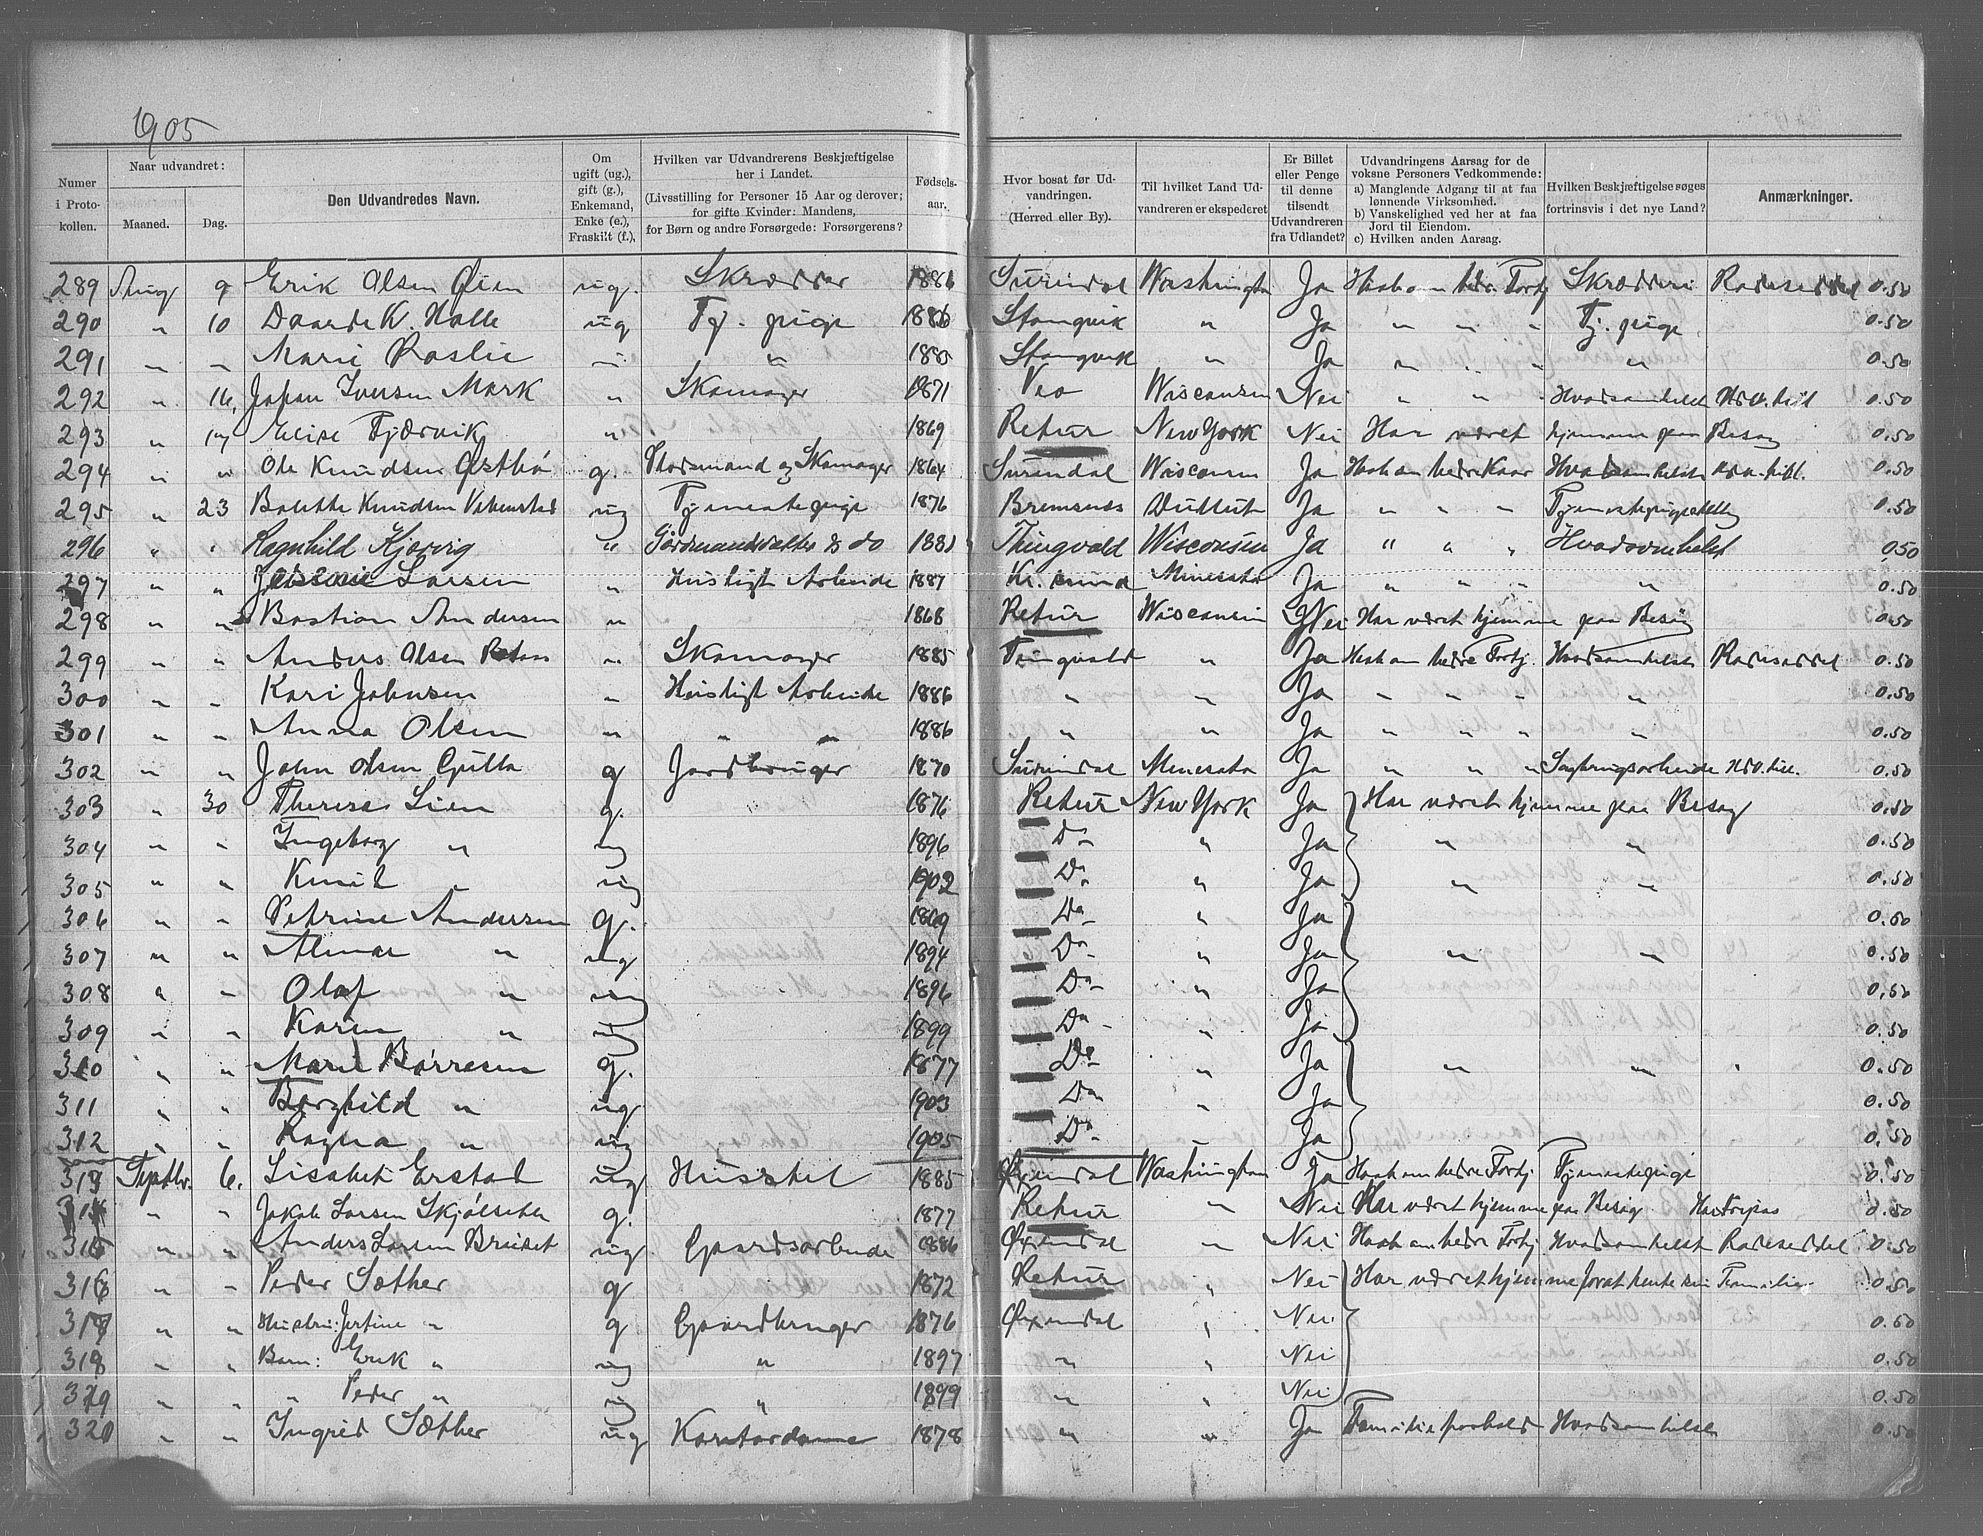 1905
Numer i Protokollen. | Naar udvandret: Maaned. Dag. | Den Udvandredes Navn. | Om ugift (ug.), gift (g.), Enkemand, Enke (e.), Fraskilt (f.), | Hvilken var Udvandrerens Beskjæftigelse her i Landet. (Livsstilling for Personer 15 Aar og derover; for gifte Kvinder: Mandens, for Børn og andre Forsørgede: Forsørgerens? | Fødselsaar. | Hvor bosat før Udvandringen. (Herred eller By). | Til hvilket Land Udvandreren er ekspederet | Er Billet eller Penge til denne tilsendt Udvandreren fra Udlandet? | Udvandringens Aarsag for de voksne Personers Vedkommende: a) Manglende Adgang til at faa lønnende Virksomhed. b) Vanskelighed ved her at faa Jord til Eiendom. c) Hvilken anden Aarsag. | Hvilken Beskjæftigelse søges fortrinsvis i det nye Land? | Anmærkninger.
289 Aug 9 Erik Olsen Øien ug. Skrædder 1886 Surendal Washington Ja Haab om bedre Fortj Skrædderi Radeseddel 0.50
290 " 10 K. Halle ug Tj. pige 1886 Stangvik " Ja " " " Tj. pige 0.50
291 " " Marie " " 1885 Stangvik " Ja " " " " 0.50
292 " 16. Johan Iversen Mark " Skomager 1871 Veo Wisconsin Nei " " " Hvadsomhelst 0.50
293 " 17 Elise Tjærvik " 1869 Retur New York Nei Har været hjemme paa Besøg 0.50
294 " " Ole Knudsen g. og Skomager 1864 Surendal Wisconsin Ja Haab om bedre Kaar Hvadsomhelst 0.50
295 " 23 Bolette Knudsen ug Tjenestepige 1876 Bremsnes Dullut Ja " " " 0.50
296 " " Ragnhild Kjørvig " do 1881 Thingvold Wisconsin Ja " " " Hvadsomhelst 0.50
297 " " Larsen " Husligt Arbeide 1887 Kr. sund Minesota Ja " " " " 0.50
298 " " Bastian Andersen " 1868 Retur Wisconsin Nei Har været hjemme paa Besøg 0.50
299 " " Anders Olsen " Skomager 1885 Tingvold " Ja Haab om bedre Fortj. Hvadsomhelst Radeseddel 0.50
300 " " Kari Johnsen " Husligt Arbeide 1886 " " Ja " " " " 0.50
301 " " Anna Olsen " " " 1886 " " Ja " " " " 0.50
302 " " John Olsen g Jordbruger 1870 Surendal Minesota Ja " " " 0.50
303 " 30 Therese Lien g. 1876 Retur New York Ja Har været hjemme paa Besøg 0.50
304 " " Ingeborg " ug 1896 Do " Ja " " 0.50
305 " " Knut " ug 1902 Do " Ja " " 0.50
306 " " Petrine Andersen g. 1869 Do " Ja 0.50
307 " " " ug 1894 Do " Ja " " 0.50
308 " " Olaf " ug 1896 Do " Ja 0.50
309 " " Karen " ug 1899 Do " Ja 0.50
310 " " Marie Børresen g. 1877 Do " Ja " " " 0.50
311 " " Borghild " ug 1903 Do " Ja 0.50
312 " " Ragna " ug 1905 Do " Ja 0.50
313 Septbr. 6. Lisabet Erstad ug Husstel 1885 Øxendal Washington Ja Haab om bedre Fortj Tjenestepige 0.50
314 " " Jakob Larsen g. 1877 Retur " Nei Har været hjemme paa Besøg Har Fripas 0.50
315 " " Anders Larsen ug. Gaardsarbeide 1886 Øxendal " Nei Haab om bedre Fortj Hvadsomhelst Radeseddel 0.50
316 " " Peder Sæther g 1872 Retur " Nei Har været hjemme forat hente sin Familie 0.50
317 " " Hustru: Jertine " g Gaardbruger 1876 Øxendal " Nei 0.50
318 " " Barn: Erik " ug " 1897 " " Nei 0.50
319 " " " Peder " ug " 1899 " " Nei 0.50
320 " " Ingrid Sæther ug 1878 " " Ja Familieforhold Hvadsomhelst 0.50